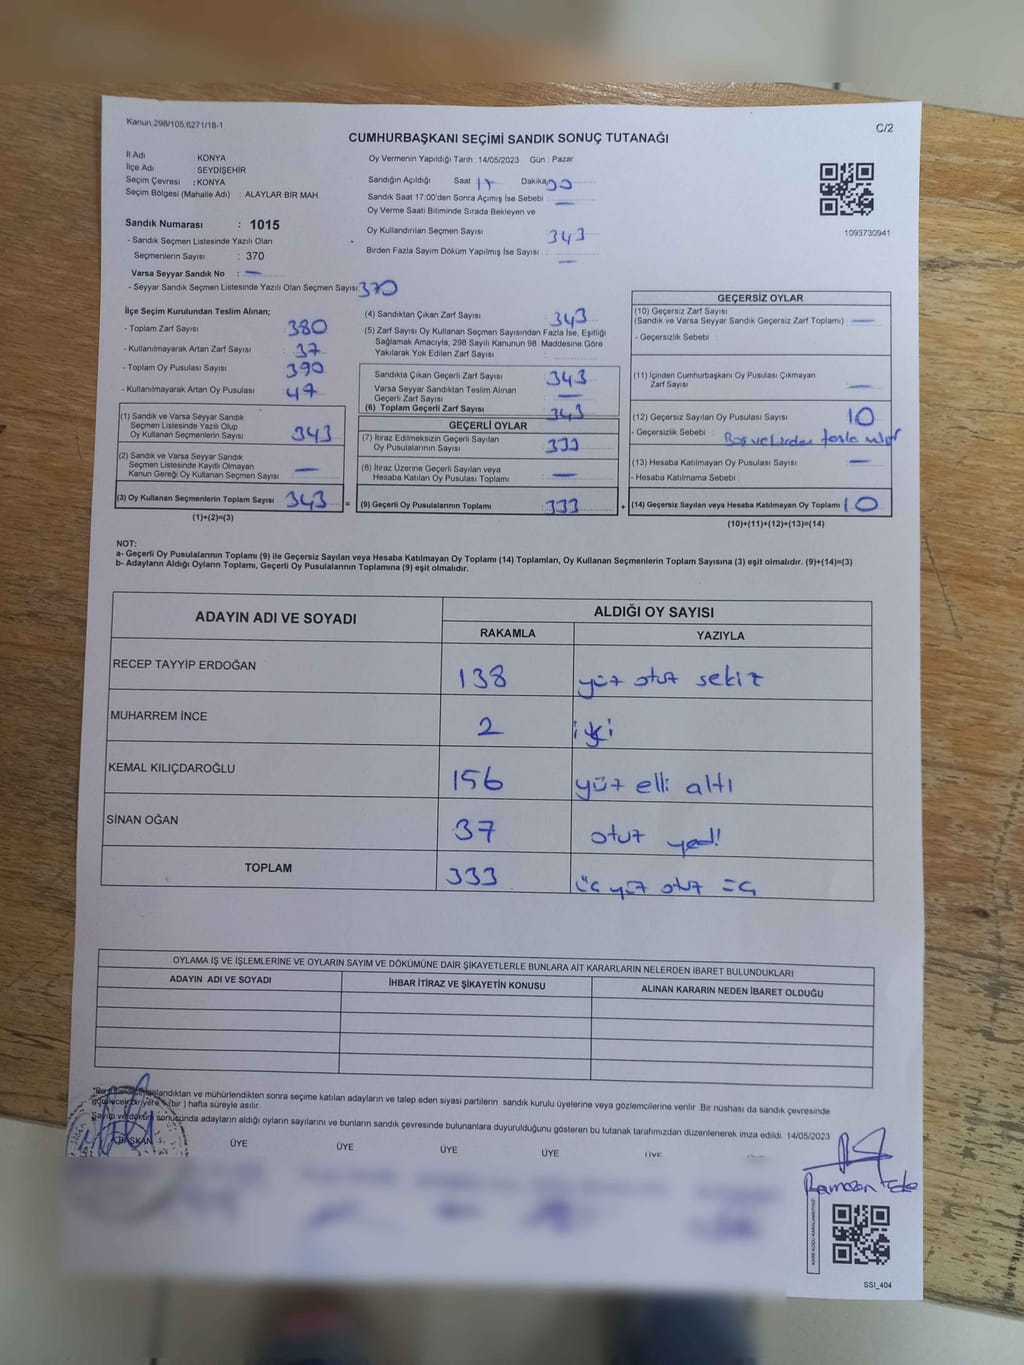 Kanun.298/105,6271/18-1
C/2
CUMHURBAŞKANI SEÇİMİ SANDIK SONUÇ TUTANAĞI
İl Adı KONYA
İlçe Adı SEYDİŞEHİR
Seçim Çevresi : KONYA
Seçim Bölgesi (Mahalle Adı) : ALAYLAR BİR MAH.
Oy Vermenin Yapıldığı Tarih : 14/05/2023 Gün : Pazar
Sandığın Açıldığı Saat 17 Dakika 00
Sandık Saat 17:00'den Sonra Açımış İse Sebebi : —
Oy Verme Saati Bitiminde Sırada Bekleyen ve
Oy Kullandırılan Seçmen Sayısı 343
Birden Fazla Sayım Döküm Yapılmış İse Sayısı : —
1093730941
Sandık Numarası : 1015
- Sandık Seçmen Listesinde Yazılı Olan
Seçmenlerin Sayısı : 370
Varsa Seyyar Sandık No : —
- Seyyar Sandık Seçmen Listesinde Yazılı Olan Seçmen Sayısı: 370
İlçe Seçim Kurulundan Teslim Alınan;
- Toplam Zarf Sayısı 380
- Kullanılmayarak Artan Zarf Sayısı : 37
- Toplam Oy Pusulası Sayısı 390
- Kullanılmayarak Artan Oy Pusulası 47
(1) Sandık ve Varsa Seyyar Sandık
Seçmen Listesinde Yazılı Olup
Oy Kullanan Seçmenlerin Sayısı 343
(2) Sandık ve Varsa Seyyar Sandık
Seçmen Listesinde Kayıtlı Olmayan
Kanun Gereği Oy Kullanan Seçmen Sayısı —
(3) Oy Kullanan Seçmenlerin Toplam Sayısı 343 =
(1)+(2)=(3)
(4) Sandıktan Çıkan Zarf Sayısı : 343
(5) Zarf Sayısı Oy Kullanan Seçmen Sayısından Fazla İse, Eşitliği
Sağlamak Amacıyla, 298 Sayılı Kanunun 98. Maddesine Göre
Yakılarak Yok Edilen Zarf Sayısı
Sandıkta Çıkan Geçerli Zarf Sayısı 343
Varsa Seyyar Sandıktan Teslim Alınan
Geçerli Zarf Sayısı —
(6) Toplam Geçerli Zarf Sayısı 343
GEÇERLİ OYLAR
(7) İtiraz Edilmeksizin Geçerli Sayılan
Oy Pusulalarının Sayısı 333
(8) İtiraz Üzerine Geçerli Sayılan veya
Hesaba Katılan Oy Pusulası Toplamı —
(9) Geçerli Oy Pusulalarının Toplamı 333 +
GEÇERSİZ OYLAR
(10) Geçersiz Zarf Sayısı
(Sandık ve Varsa Seyyar Sandık Geçersiz Zarf Toplamı) —
- Geçersizlik Sebebi :
(11) İçinden Cumhurbaşkanı Oy Pusulası Çıkmayan
Zarf Sayısı —
(12) Geçersiz Sayılan Oy Pusulası Sayısı 10
- Geçersizlik Sebebi : fazla
(13) Hesaba Katılmayan Oy Pusulası Sayısı —
- Hesaba Katılmama Sebebi :
(14) Geçersiz Sayılan veya Hesaba Katılmayan Oy Toplamı 10
(10)+(11)+(12)+(13)=(14)
NOT:
a- Geçerli Oy Pusulalarının Toplamı (9) ile Geçersiz Sayılan veya Hesaba Katılmayan Oy Toplamı (14) Toplamları, Oy Kullanan Seçmenlerin Toplam Sayısına (3) eşit olmalıdır. (9)+(14)=(3)
b- Adayların Aldığı Oyların Toplamı, Geçerli Oy Pusulalarının Toplamına (9) eşit olmalıdır.
ADAYIN ADI VE SOYADI ALDIĞI OY SAYISI
RAKAMLA YAZIYLA
RECEP TAYYİP ERDOĞAN 138 yüz otuz sekiz
MUHARREM İNCE 2 iki
KEMAL KILIÇDAROĞLU 156 yüz elli altı
SİNAN OĞAN 37 otuz yedi
TOPLAM 333 üç yüz otuz üç
OYLAMA İŞ VE İŞLEMLERİNE VE OYLARIN SAYIM VE DÖKÜMÜNE DAİR ŞİKAYETLERLE BUNLARA AİT KARARLARIN NELERDEN İBARET BULUNDUKLARI
ADAYIN ADI VE SOYADI İHBAR İTİRAZ VE ŞİKAYETİN KONUSU ALINAN KARARIN NEDEN İBARET OLDUĞU
ve mühürlendikten sonra seçime katılan adayların ve talep eden siyasi partilerin sandık kurulu üyelerine veya gözlemcilerine verilir. Bir nüshası da sandık çevresinde
bir yere 1 (bir) hafta süreyle asılır.
Sayım ve döküm sonucunda adayların aldığı oyların sayılarını ve bunların sandık çevresinde bulunanlara duyurulduğunu gösteren bu tutanak tarafımızdan düzenlenerek imza edildi. 14/05/2023
BAŞKAN ÜYE ÜYE ÜYE ÜYE ÜYE
Ramazan
SSI_404